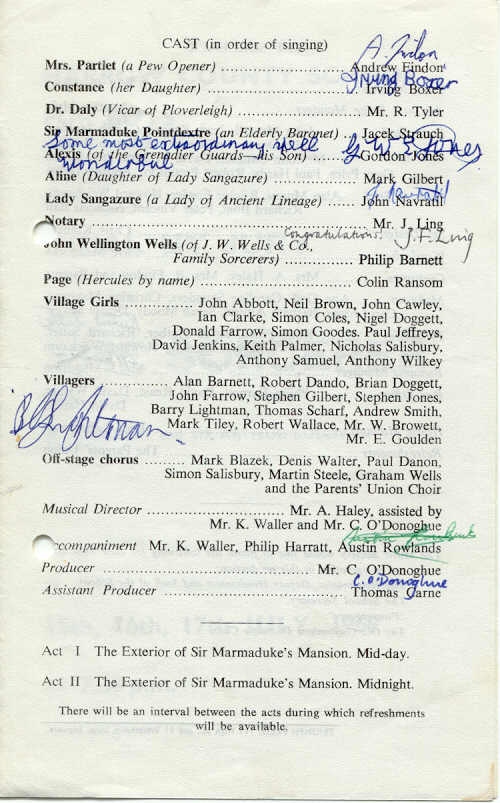 CAST (in order of singing)
A. Findon
Mrs. Partlet (a Pew Opener) ........................ Andrew Findon
Irving Boxer
Constance (her Daughter) ........................ Irving Boxer
Dr. Daly (Vicar of Ploverleigh) ........................ Mr. R. Tyler
Sir Marmaduke Pointdextre (an Elderly Baronet) ... Jacek Strauch
Some most extraordinary spell G. W. S. Jones
Alexis (of the Grenadier Guards—his Son) ...... Gordon Jones
wonderous
Aline (Daughter of Lady Sangazure) ............ Mark Gilbert
J. Navratil
Lady Sangazure (a Lady of Ancient Lineage) ...... John Navratil
Notary ........................ Mr. J. Ling
Congratulations! J. F. Ling
John Wellington Wells (of J. W. Wells & Co.,
Family Sorcerers) ............ Philip Barnett
Page (Hercules by name) ........................ Colin Ransom
Village Girls ............ John Abbott, Neil Brown, John Cawley,
Ian Clarke, Simon Coles, Nigel Doggett,
Donald Farrow, Simon Goodes. Paul Jeffreys,
David Jenkins, Keith Palmer, Nicholas Salisbury,
Anthony Samuel, Anthony Wilkey
Villagers ............ Alan Barnett, Robert Dando, Brian Doggett,
John Farrow, Stephen Gilbert, Stephen Jones,
Barry Lightman, Thomas Scharf, Andrew Smith,
Mark Tiley, Robert Wallace, Mr. W. Browett,
Mr. E. Goulden
B Lightman
Off-stage chorus ......... Mark Blazek, Denis Walter, Paul Danon,
Simon Salisbury, Martin Steele, Graham Wells
and the Parents' Union Choir
Musical Director ........................ Mr. A. Haley, assisted by
Mr. K. Waller and Mr. C. O'Donoghue
Austin Rowlands
ccompaniment Mr. K. Waller, Philip Harratt, Austin Rowlands
Producer ........................ Mr. C. O'Donoghue
C. O'Donoghue
Assistant Producer ........................ Thomas Carne
Act I The Exterior of Sir Marmaduke's Mansion. Mid-day.
Act II The Exterior of Sir Marmaduke's Mansion. Midnight.
There will be an interval between the acts during which refreshments
will be available.